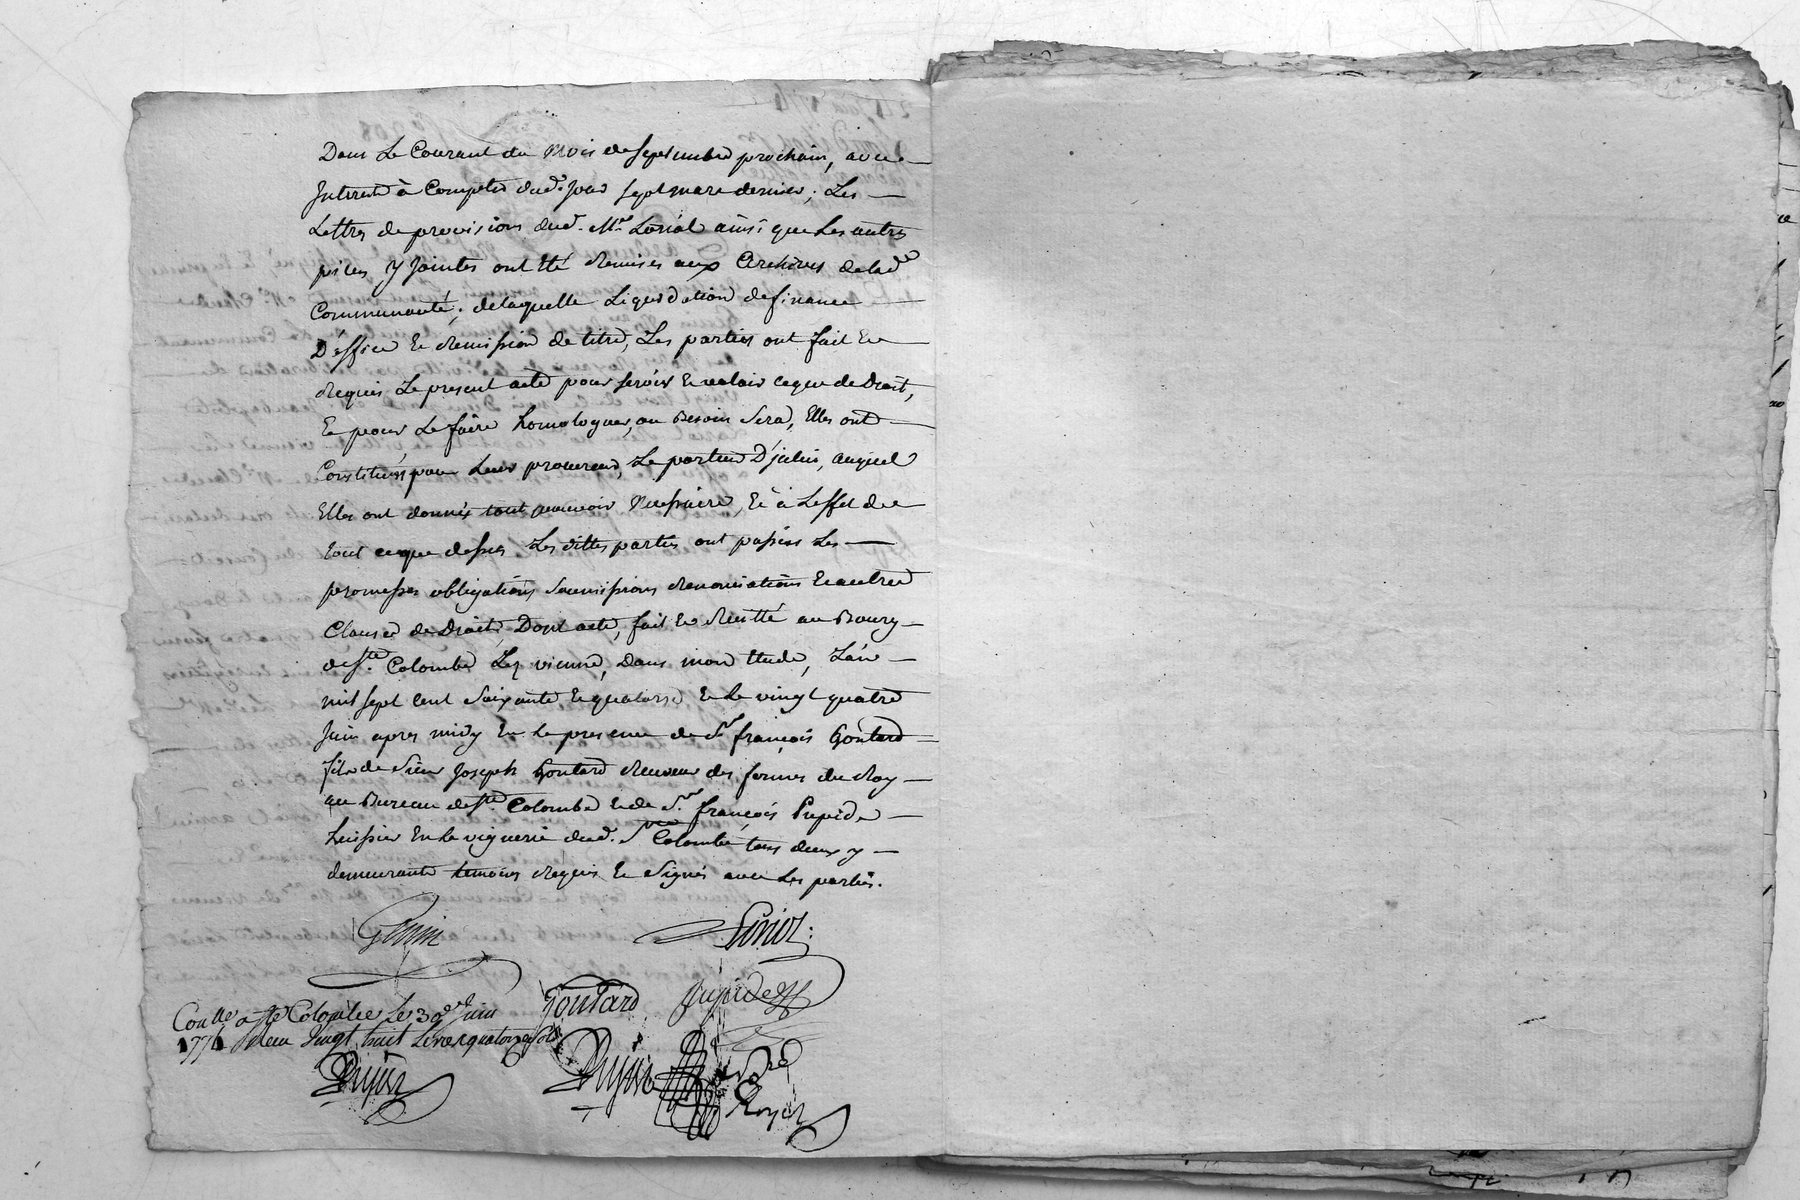 Dans Le Courant du Mois de septembre prochain, avec
Interest à Compter dud. jour sept mars dernier; Les
Lettres de provisions dud. Mre. Loriol ainsi que Les autres
pieces y Jointes ont Eté Remises aux Archives de lad.
Communauté; de laquelle Liquidation de finance
D'office Et Remission de titre, Les parties ont fait Et
Requis Le present acte pour servir Et valoir ce que de Droit,
Et pour Le faire homologuer, ou Besoin Sera, Elles ont
Constitués pour Leur procureur, Le porteur D'jcelui, auquel
Elles ont donnés tout pouvoir Necessaire, Et à L'effet de
tout ce que dessus Les dittes parties ont passées Les
promesses obligations soumissions Renonciations Et autres
Clauses de Droit, Dont acte, fait Et Recitté au Bourg
de Ste. Colombe Lez vienne, Dans mon Etude, L'an
mil sept cent soixante Et quatorze Et Le vingt quatre
Juin apres midy En La presence de Sr. françois Goutard
fils de Sieur Joseph Goutard Receveur des fermes du Roy
au Bureau de Ste. Colombe Et de Sr. françois Pupide
huissier En La viguerie dud. Ste Colombe tous deux y
demeurants temoins Requis Et Signés avec Les parties.
Loriol
Goutard
Conlle a Ste Colombe Le 30e Juin
1774 Reçu Vingt huit Livres quatorze sols
Dujour Dujour
Nore
Royal